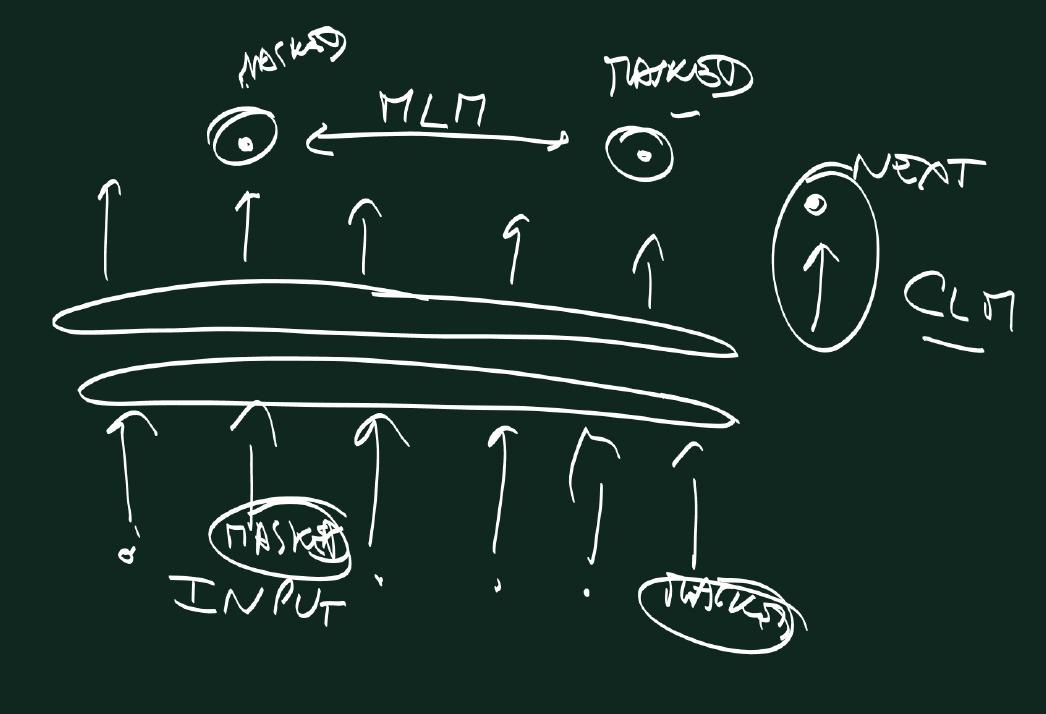 MASKED
MASKED
MLM
NEXT
CLM
MASKED
INPUT
MASKED